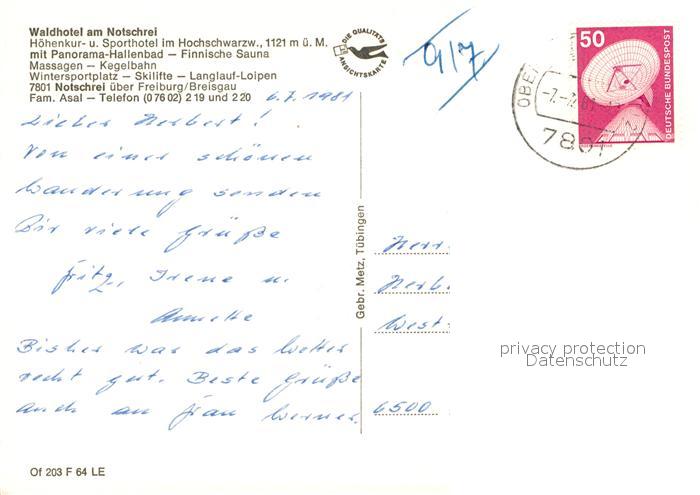 Waldhotel am Notschrei
Höhenkur- u. Sporthotel im Hochschwarzw., 1121 m ü. M.
mit Panorama-Hallenbad – Finnische Sauna
Massagen – Kegelbahn
Wintersportplatz – Skilifte – Langlauf-Loipen
7801 Notschrei über Freiburg/Breisgau
Fam. Asal – Telefon (0 76 02) 2 19 und 2 20
6.7.1981
Lieber Herbert!
Von einer schönen
Wanderung senden
Dir viele Grüße
Fritz, Irene u.
Annette
Bisher war das Wetter
recht gut. Beste Grüße
auch an Frau Werner.
Of 203 F 64 LE
DIE QUALITÄTS
ANSICHTSKARTE
9/7
Gebr. Metz, Tübingen
50
DEUTSCHE BUNDESPOST
OBE
7801
Herr
Herb.
West
6500
privacy protection
Datenschutz